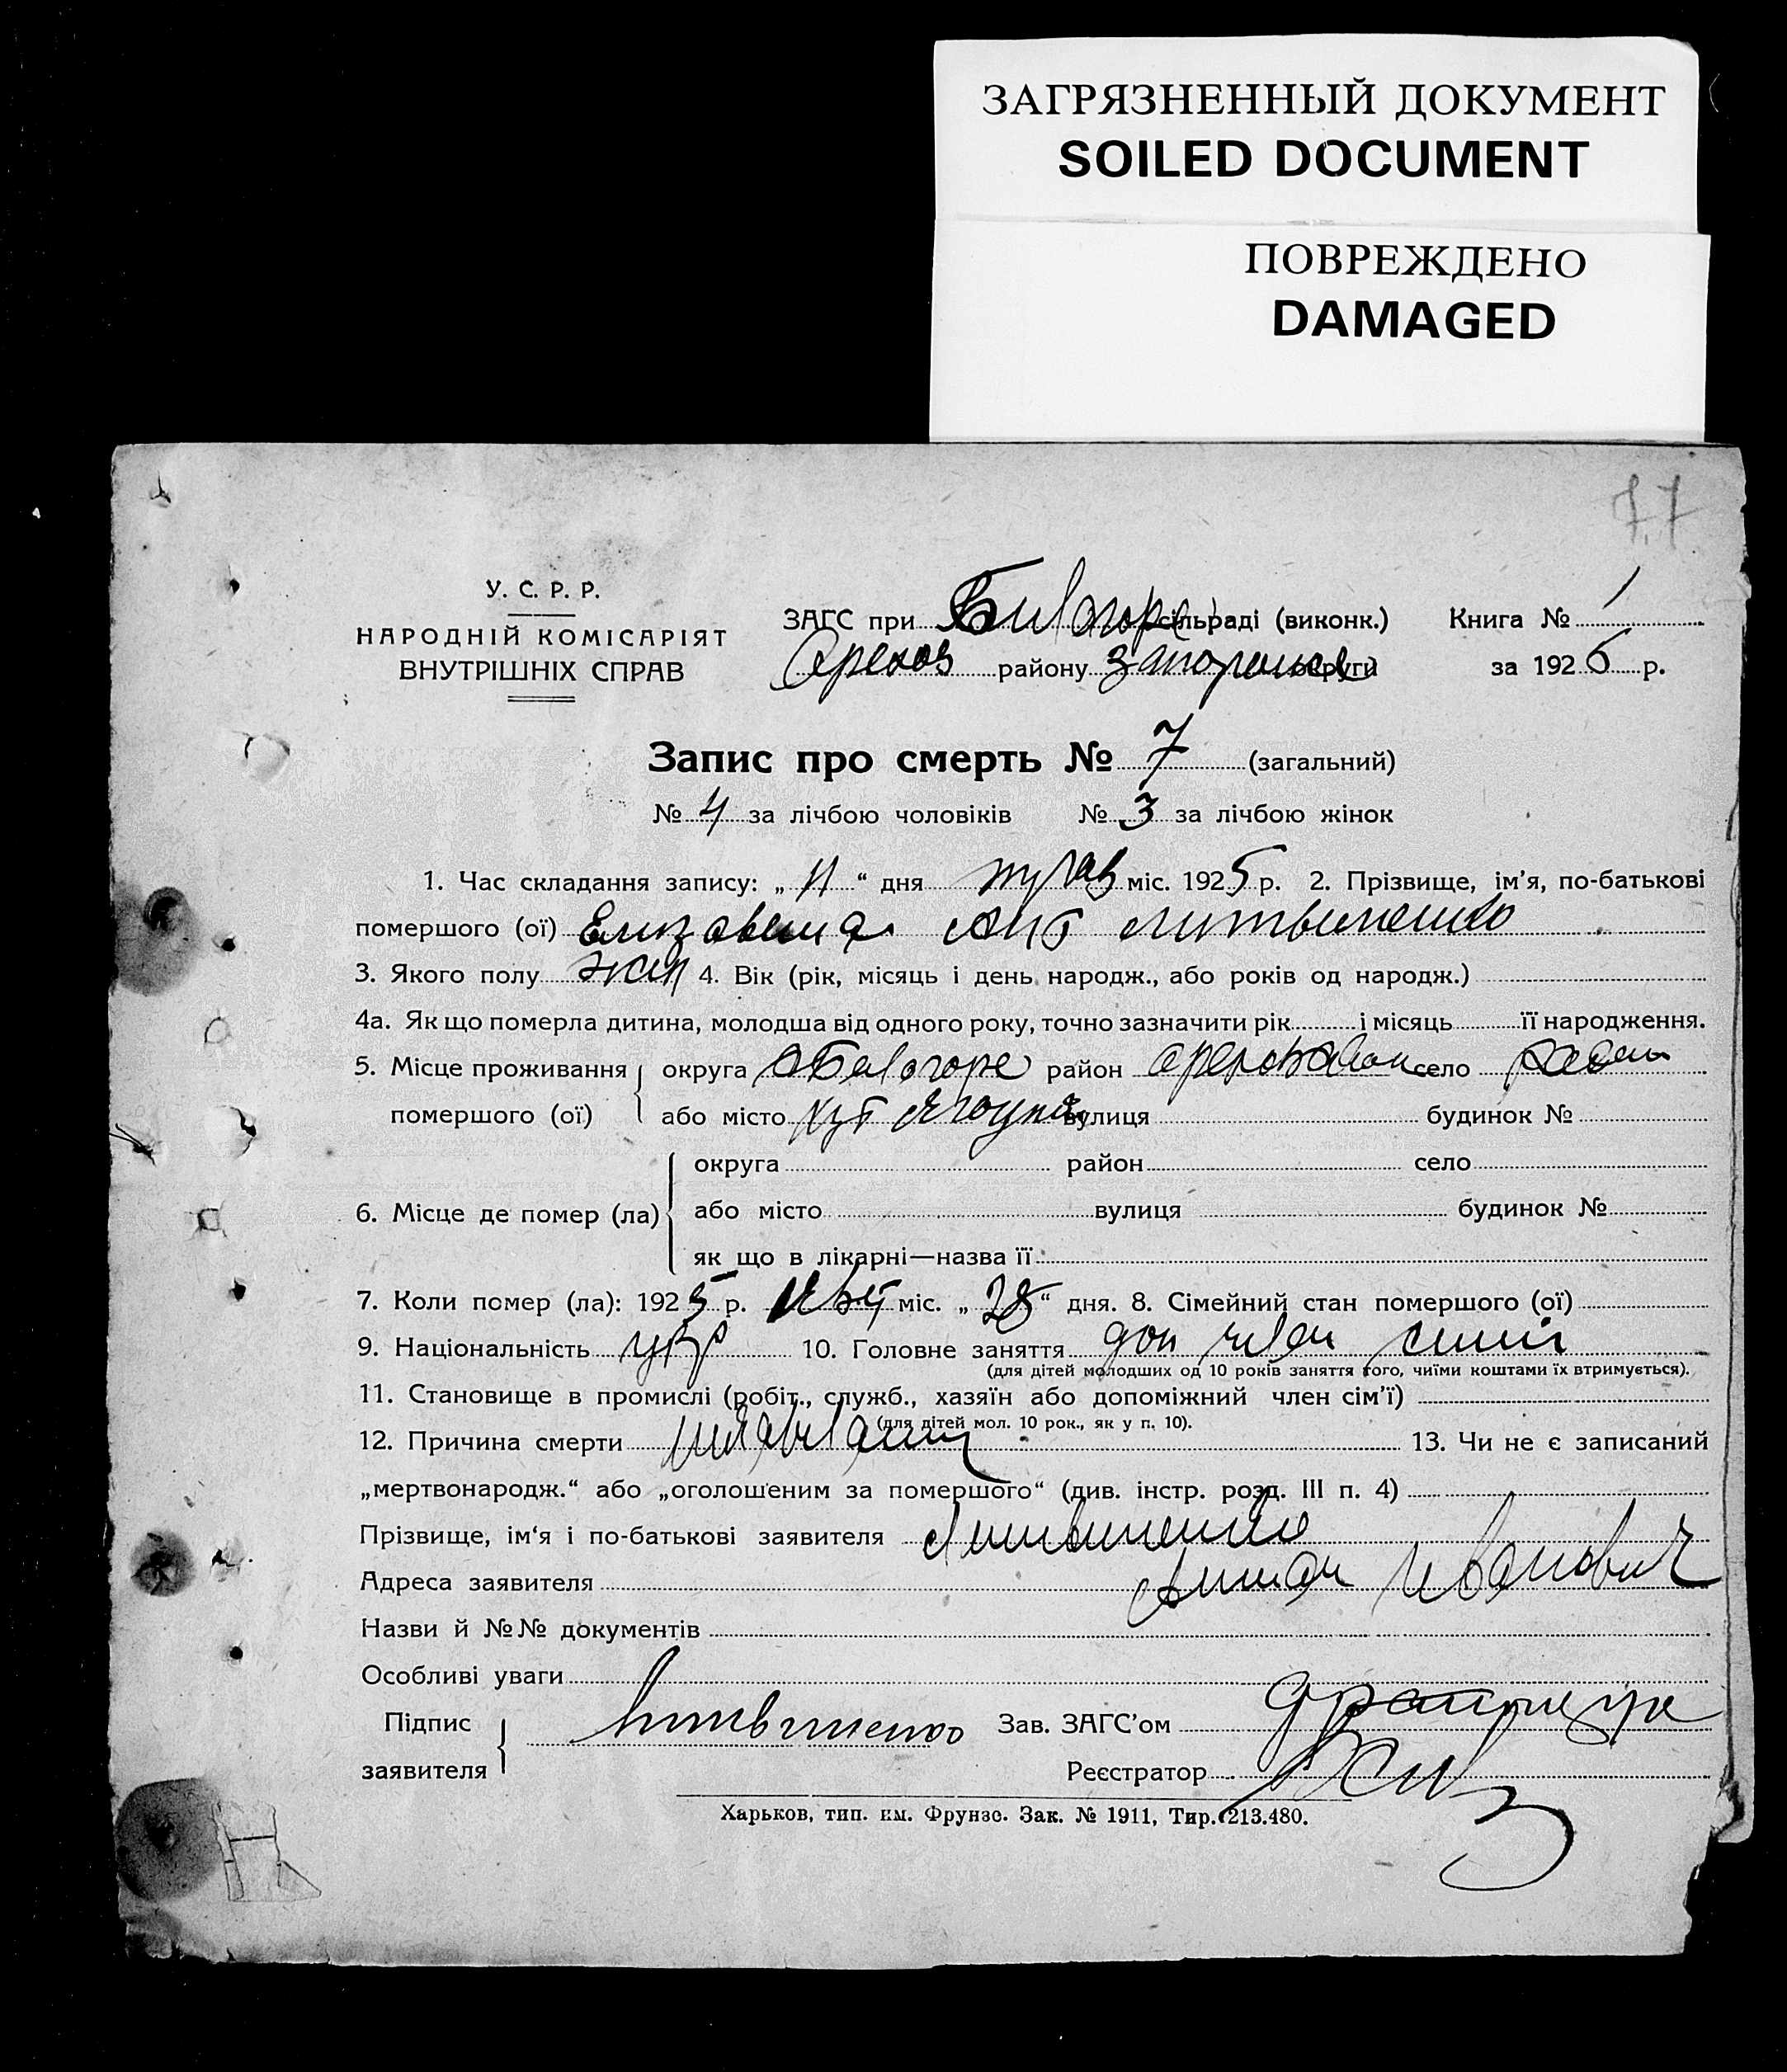 ЗАГРЯЗНЕННЫЙ ДОКУМЕНТ
SOILED DOCUMENT
ПОВРЕЖДЕНО
DAMAGED
77
У. С. Р. Р.
НАРОДНІЙ КОМІСАРІЯТ
ВНУТРІШНІХ СПРАВ
ЗАГС при сільраді (виконк.) Книга № 1
Орехов району округи за 192 р.
Запис про смерть № 7 (загальний)
№ 4 за лічбою чоловіків № 3 за лічбою жінок
1. Час складання запису: „ 11 “ дня трав міс. 1925 р. 2. Прізвище, ім'я, по-батькові
помершого (ої) Елизавета Ант Литвиненко
3. Якого полу жен 4. Вік (рік, місяць і день народж., або років од народж.)
4а. Як що померла дитина, молодша від одного року, точно зазначити рік і місяць її народження.
5. Місце проживання округа район село
помершого (ої) або місто хут вулиця будинок №
округа район село
6. Місце де помер (ла) або місто вулиця будинок №
як що в лікарні—назва її
7. Коли помер (ла): 1925 р. міс. „ 28 “ дня. 8. Сімейний стан помершого (ої)
9. Національність укр 10. Головне заняття доп член
(для дітей молодших од 10 років заняття того, чиїми коштами їх втримується).
11. Становище в промислі (робіт., служб., хазяїн або допоміжний член сім'ї)
(для дітей мол. 10 рок., як у п. 10).
12. Причина смерти 13. Чи не є записаний
„мертвонародж.“ або „оголошеним за помершого“ (див. інстр. розд. III п. 4)
Прізвище, ім‘я і по-батькові заявителя Литвиненко
Адреса заявителя Антон Иванович
Назви й №№ документів
Особливі уваги
Підпис Литвиненко Зав. ЗАГС'ом
заявителя Реєстратор
Харьков, тип. им. Фрунзе. Зак. № 1911, Тир. 213.480.